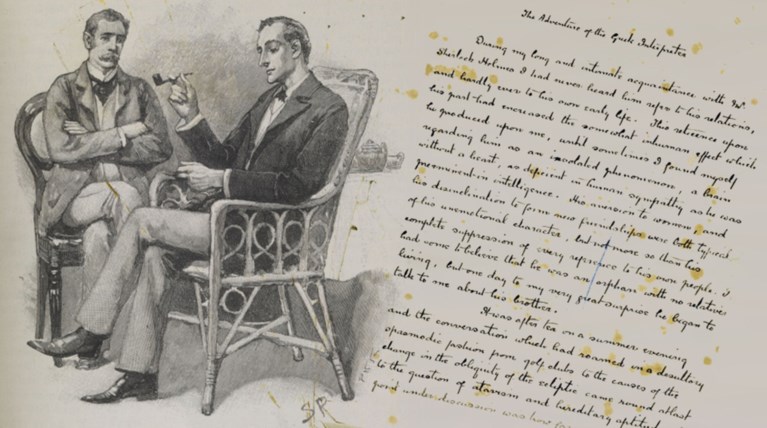 The Adventure of the Greek Interpreter
During my long and intimate acquaintance with Mr.
Sherlock Holmes I had never heard him refer to his relations,
and hardly ever to his own early life. This reticence upon
his part had increased the somewhat inhuman effect which
he produced upon me, until sometimes I found myself
regarding him as an isolated phenomenon, a brain
without a heart, as deficient in human sympathy as he was
preeminent in intelligence. His aversion to women, and
his disinclination to form new friendships were both typical
of his unemotional character, but not more so than his
complete suppression of every reference to his own people. I
had come to believe that he was an orphan with no relative
living, but one day to my very great surprise he began to
talk to me about his brother.
It was after tea on a summer evening
and the conversation which had roamed in a desultory
spasmodic fashion from golf clubs to the causes of the
change in the obliquity of the ecliptic came round at last
to the question of atavism and hereditary aptitudes
point under discussion was how far
SP